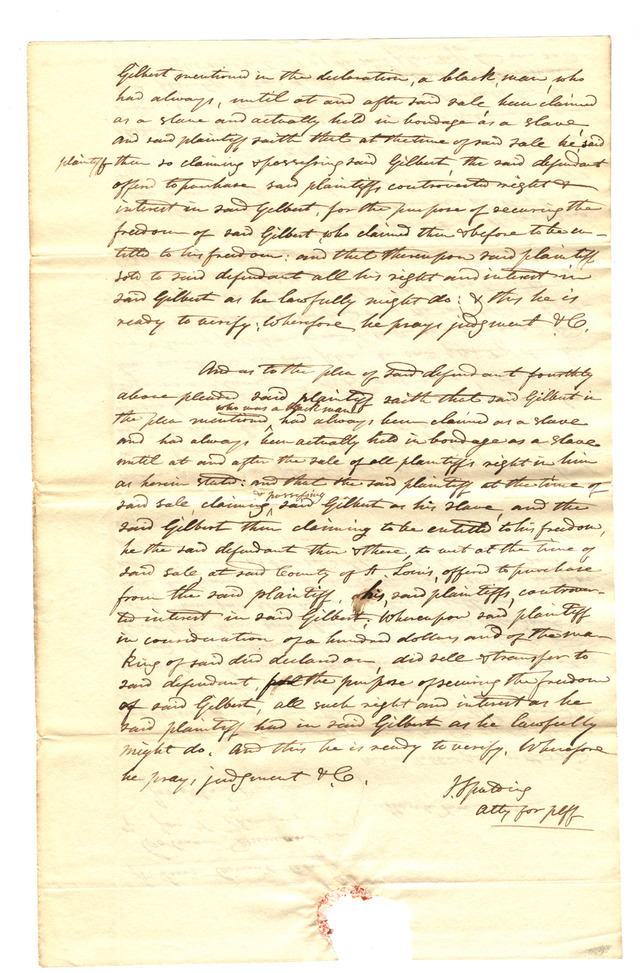 Gilbert mentioned in the declaration, a black man, who
had always, until at and after said sale been claimed
as a slave and actually held in bondage as a slave
And said plaintiff saith that at the time of said sale he said
plaintiff then so claiming & possessing said Gilbert, the said defendant
offerd to purchase said plaintiffs controverted right &
interest in said Gilbert, for the purpose of securing the
freedom of said Gilbert, who claimed then & before to be en-
titled to his freedom: and that thereupon said plaintiff
sold to said defendant all his right and interest in
said Gilbert as he lawfully might do: & this he is
ready to verify; Wherefore he prays judgment &C.
And as to the plea of said defendant fourthly
above pleaded said plaintiff saith that said Gilbert in
who was a black man
the plea mentioned, had always been claimed as a slave
and had always been actually held in bondage as a slave
until at and after the sale of all plaintiffs right in him
as herein stated: and that the said plaintiff at the time of
& possessing
said sale, claiming said Gilbert as his slave, and the
said Gilbert then claiming to be entitled to his freedom,
he the said defendant then & there, to wit at the time of
said sale, at said County of St Louis, offerd to purchase
from the said plaintiff, his, said plaintiffs, controver-
ted interest in said Gilbert; Whereupon said plaintiff
in consideration of a hundred dollars and of the ma-
king of said deed declared on, did sell & transfer to
said defendant for the purpose of securing the freedom
of said Gilbert, all such right and interest as he
said plaintiff had in said Gilbert as he lawfully
might do. And this he is ready to verify. Wherefore
he prays judgment &C.
J. Spalding
Atty for plff